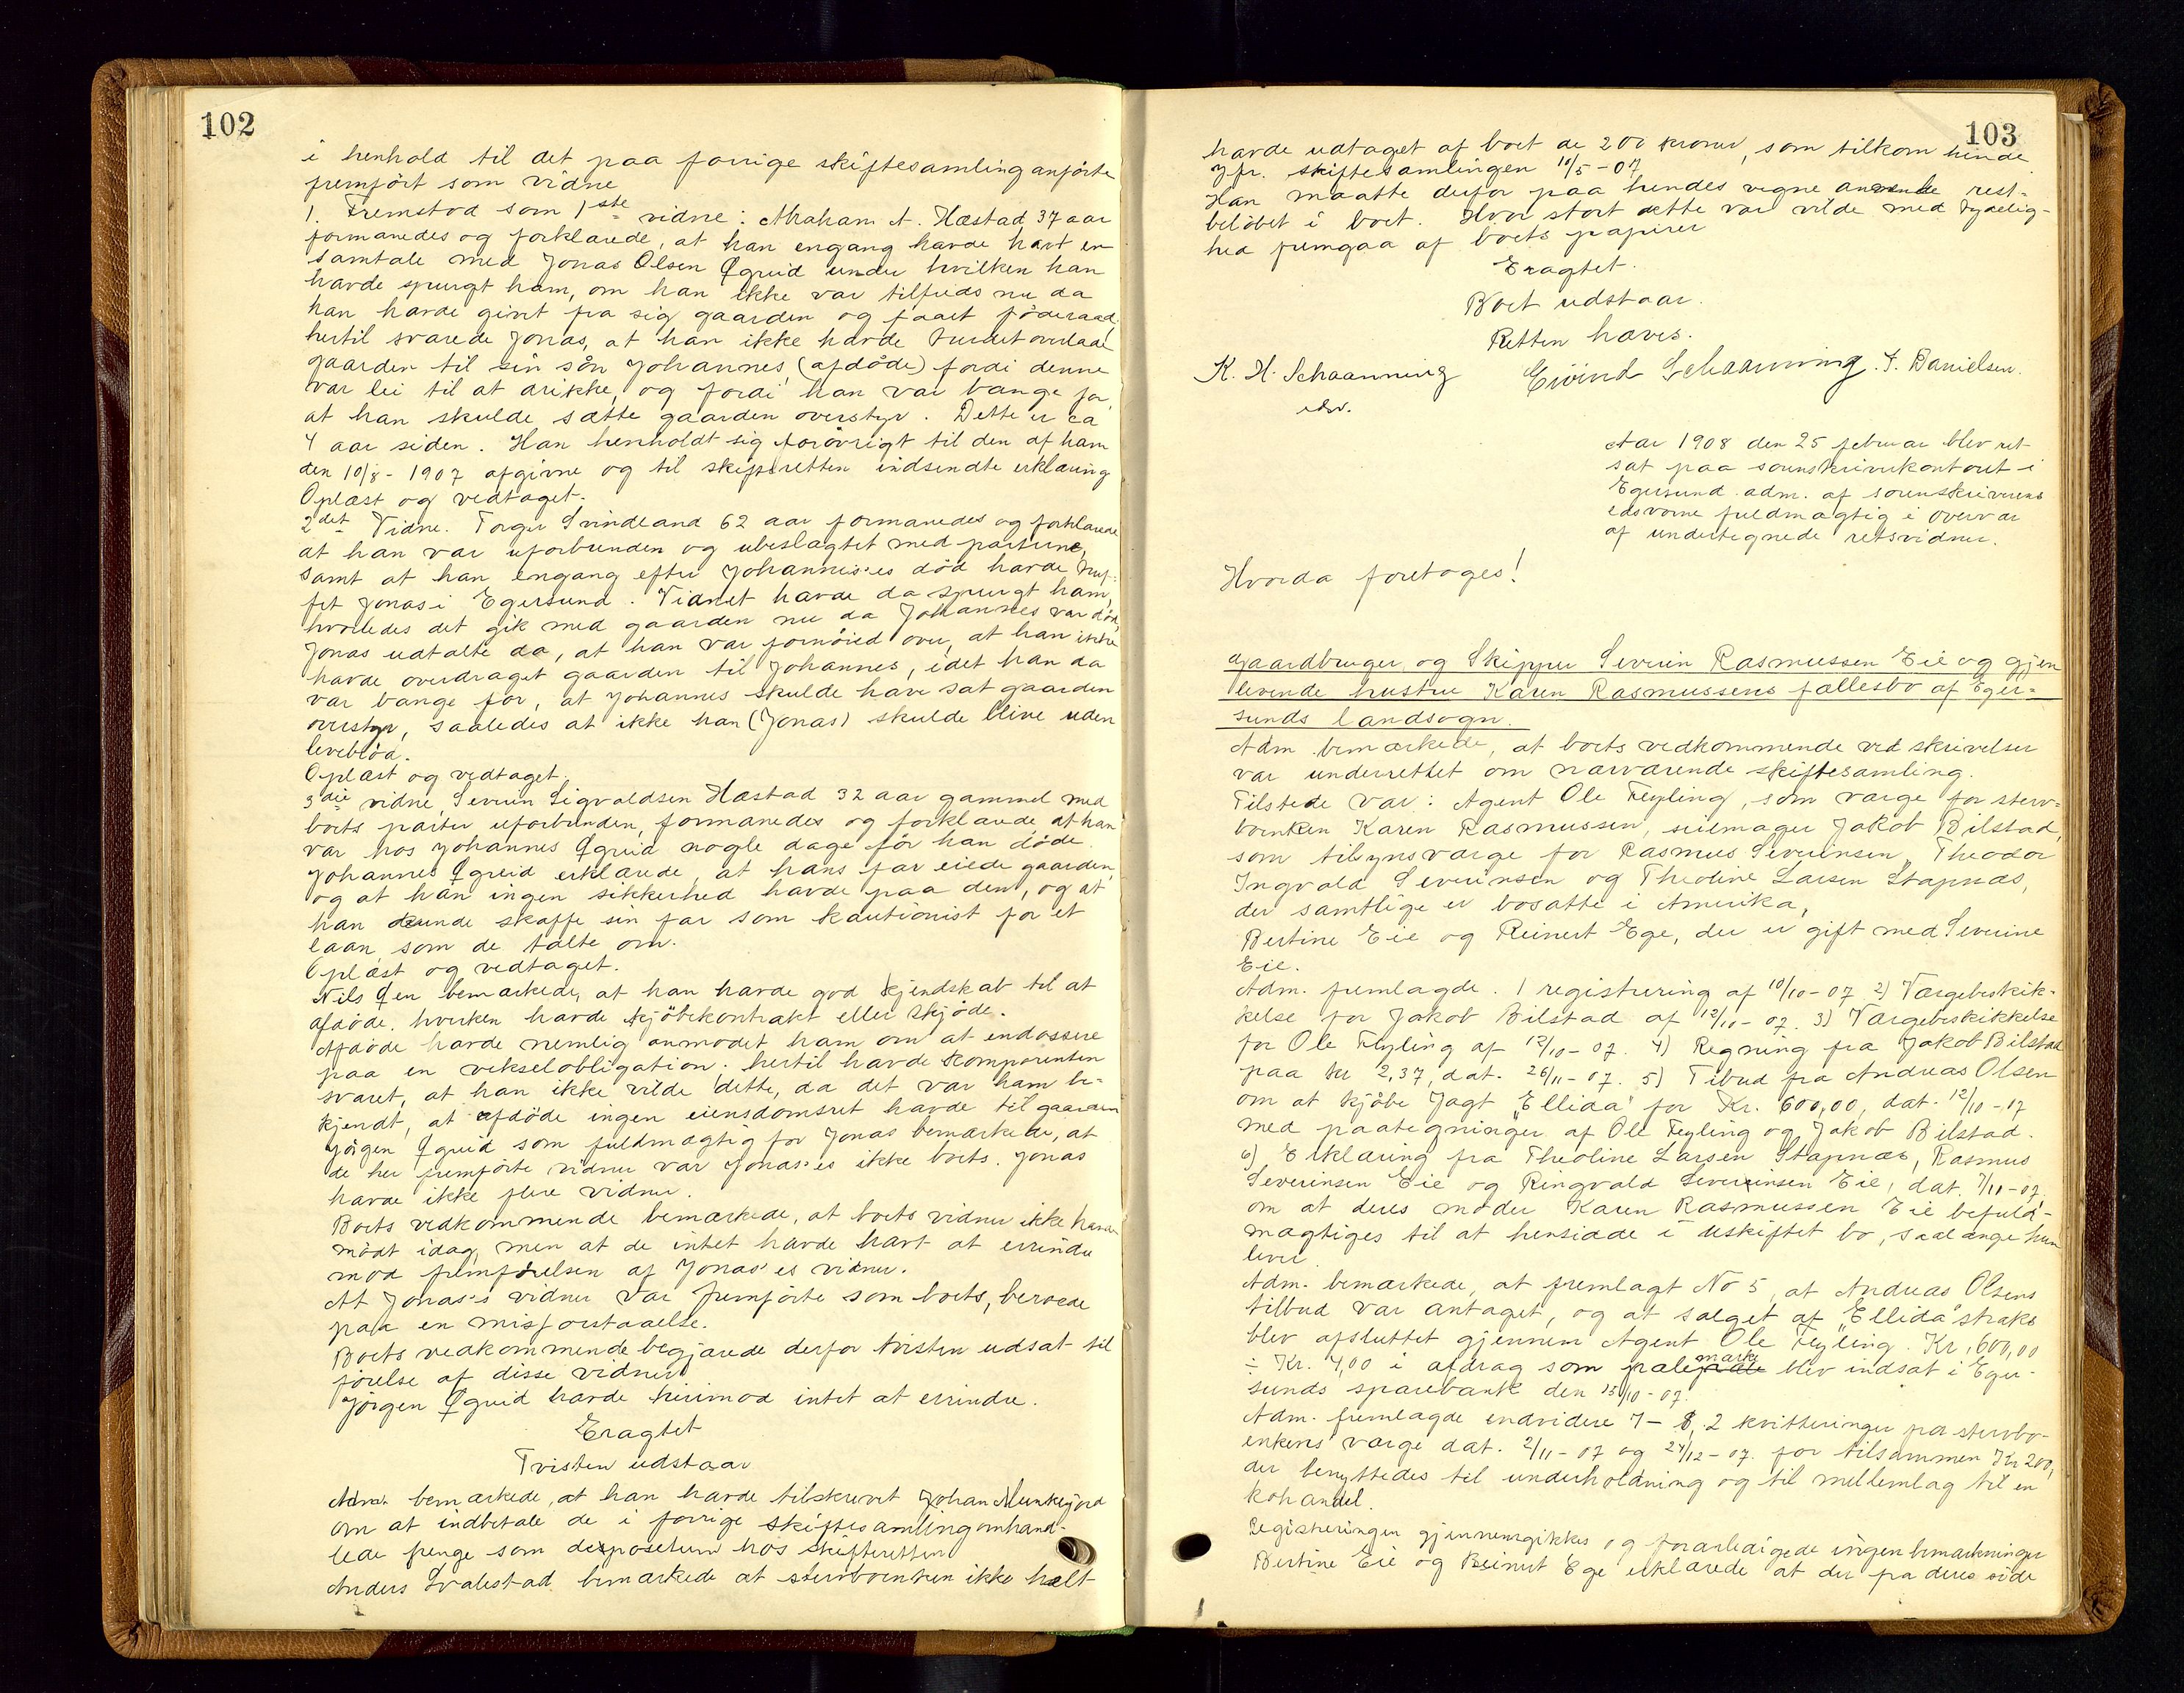 102
i henhold til det paa forrige skiftesamling anførte
fremført som vidne
1. Fremstod som 1ste vidne: Abraham A. Hæstad, 37 aar
formanedes og forklarede, at han engang havde havt en
samtale med Jonas Olsen Øgreid under hvilken han
havde spurgt ham, om han ikke var tilfreds nu da
han havde givet fra sig gaarden og faaet føderaad,
hertil svarede Jonas, at han ikke havde turdet overlade
gaarden til sin søn Johannes (afdøde) fordi denne
var lei til at drikke, og fordi han var bange for,
at han skulde sætte gaarden overstyr. Dette er ca
4 aar siden. Han henholdt sig forøvrigt til den af ham
den 10/8-1907 afgivne og til skifteretten indsendte erklæring
Oplæst og vedtaget.
2det Vidne. Torger Svindland 62 aar formanedes og forklarede
at han var uforbunden og ubeslægtet med parterne,
samt at han engang efter Johannes's død havde truf-
fet Jonas i Egersund. Vidnet havde da spurgt ham,
hvorledes det gik med gaarden nu da Johannes var død,
Jonas udtalte da, at han var fornøiet over, at han ikke
havde overdraget gaarden til Johannes, idet han da
var bange for, at Johannes skulde have sat gaarden
overstyr, saaledes at ikke han (Jonas) skulde blive uden
levebrød.
Oplæst og vedtaget.
3die vidne, Severin Sigvaldsen Hæstad 32 aar gammel med
boets parter uforbunden, formanedes og forklarede at han
var hos Johannes Øgreid nogle dage før han døde.
Johannes Øgreid erklærede, at hans far eiede gaarden,
og at han ingen sikkerhed havde paa den, og at
han kunde skaffe sin far som kautionist for et
laan, som de talte om.
Oplæst og vedtaget.
Nils Øen bemærkede, at han havde god kjendskab til at
afdøde hverken havde kjøbekontrakt eller skjøde.
Afdøde havde nemlig anmodet ham om at endossere
paa en vekselobligation; hertil havde komparenten
svaret, at han ikke vilde dette, da det var ham be-
kjendt, at afdøde ingen eiendomsret havde til gaarden
Jørgen Øgreid som fuldmægtig for Jonas bemærkede, at
de her fremførte vidner var Jonas'es ikke boets. Jonas
havde ikke flere vidner.
Boets vedkommende bemærkede, at boets vidner ikke havde
mødt idag, men at de intet havde havt at erindre
mod fremførelsen af Jonas'es vidner.
At Jonas's vidner var fremførte som boets, beroede
paa en misforstaaelse.
Boets vedkommende begjærede derfor tvisten udsat til
førelse af disse vidner.
Jørgen Øgreid havde herimod intet at erindre.
Eragtet
Tvisten udstaar
Adm. bemærkede, at han havde tilskrevet Johan Munkejord
om at indbetale de i forrige skiftesamling omhand-
lede penge som depositum hos skifteretten
Anders Svalestad bemærkede at sterboenken ikke helt
103
havde udtaget af boet de 200 kroner, som tilkom hende
jfr. skiftesamlingen 10/5-07
Han maatte derfor paa hendes vegne anvende rest-
beløbet i boet. Hvor stort dette var vilde med tydelig-
hed fremgaa af boets papirer
Eragtet.
Boet udstaar.
Retten hævet.
K. H. Schaanning Eivind Schaanning. T. Danielsen.
edsv.
Aar 1908 den 25 februar blev ret
sat paa sorenskriverkontoret i
Egersund adm. af sorenskriverens
edsvorne fuldmægtig i overvær
af undertegnede retsvidner.
Hvorda foretoges!
Gaardbruger og Skipper Severin Rasmussen Eie og gjen
levende hustru Karen Rasmussens fællesbo af Eger-
sunds landsogn.
Adm. bemærkede, at boets vedkommende ved skrivelser
var underrettet om nærværende skiftesamling.
Tilstede var: Agent Ole Feyling, som værge for sterv-
boenken Karen Rasmussen, seilmager Jakob Bilstad,
som tilsynsværge for Rasmus Severinsen, Theodor
Ingvald Severinsen og Theoline Larsen Stapnæs,
der samtlige er bosatte i Amerika,
Bertine Eie og Reinert Ege, der er gift med Severine
Eie.
Adm. fremlagde. 1 registrering af 10/10-07 2) Værgebeskik-
kelse for Jakob Bilstad af 12/10-07. 3) Værgebeskikkelse
for Ole Feyling af 12/10-07. 4) Regning fra Jakob Bilstad
paa kr 2,37, dat. 26/11-07. 5) Tilbud fra Andreas Olsen
om at kjøbe Jagt "Ellida" for Kr. 600,00, dat. 12/10-07
med paategninger af Ole Feyling og Jakob Bilstad.
6) Erklæring fra Theoline Larsen Stapnæs, Rasmus
Severinsen Eie og Ringvald Severinsen Eie, dat. 7/11-07,
om at deres moder Karen Rasmussen Eie befuld-
mægtiges til at hensidde i uskiftet bo, saalænge hun
lever.
Adm. bemærkede, at fremlagt No 5, at Andreas Olsens
tilbud var antaget, og at salget af "Ellida" straks
blev afsluttet gjennem Agent Ole Feyling. Kr. 600,00
÷ Kr. 4,00 i afdrag som prale mærke blev indsat i Eger-
sunds sparebank den 15/10-07.
Adm. fremlagde endvidere 7-8, 2 kvitteringer fra stervbo-
enkens værge dat. 2/11-07 og 24/12-07 for tilsammen Kr 200,
der benyttedes til underholdning og til mellemlag til en
kohandel.
Registreringen gjennemgikkes og foranledigede ingen bemærkninger
Bertine Eie og Reinert Ege erklærede at der fra deres side